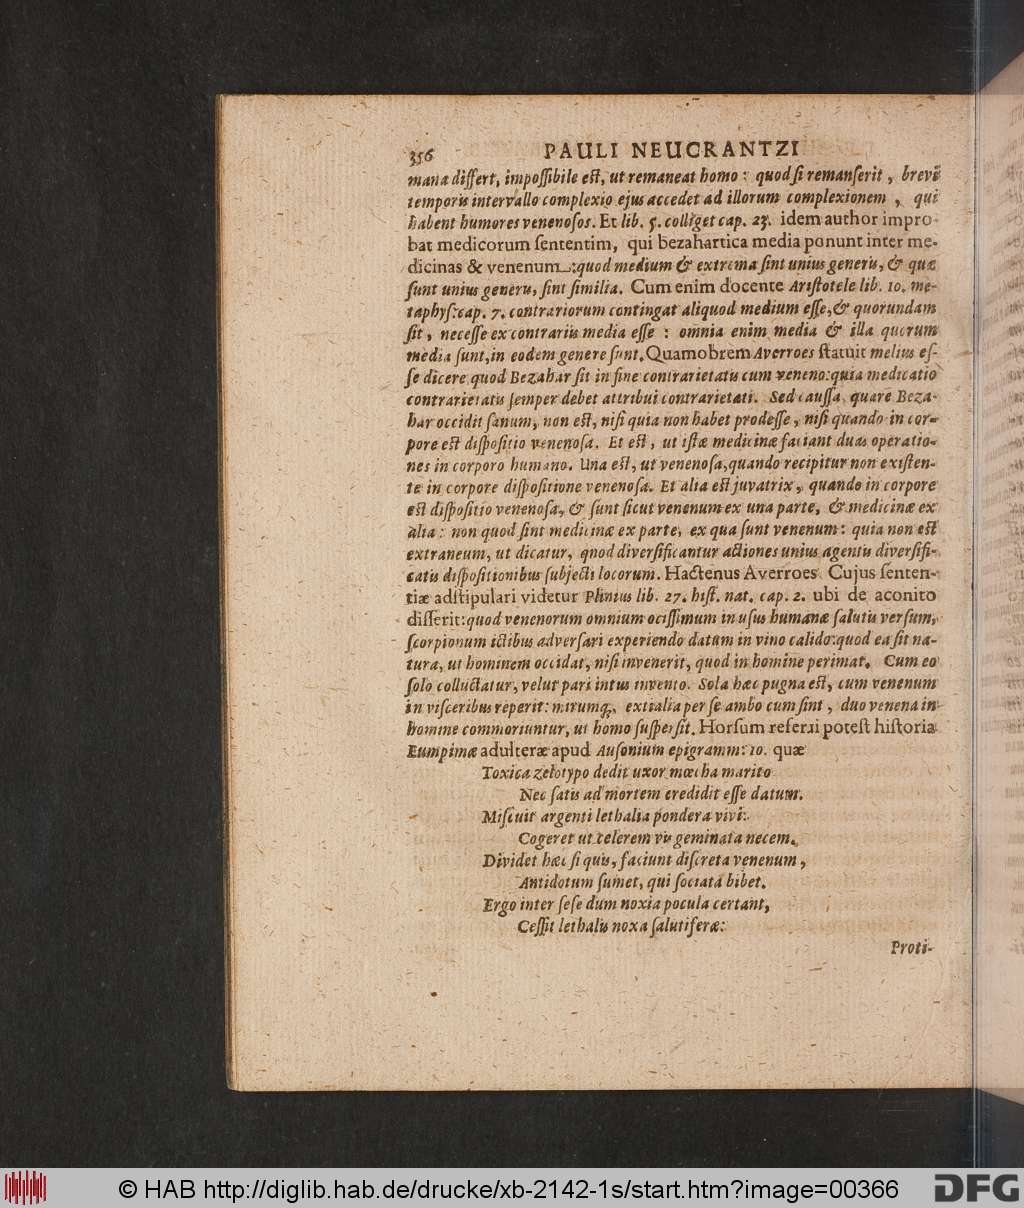 356 PAULI NEUCRANTZI
mana differt, impossibile est, ut remaneat homo: quod si remanserit, brevẽ
temporis intervallo complexio ejus accedet ad illorum complexionem, qui
habent humores venenosos. Et lib. 5. colliget cap. 23. idem author impro-
bat medicorum sententim, qui bezahartica media ponunt inter me-
dicinas & venenum: quod medium & extrema sint unius generis, & quæ
sunt unius generis, sint similia. Cum enim docente Aristotele lib. 10. me-
taphys: cap. 7. contrariorum contingat aliquod medium esse, & quorundam
sit, necesse ex contrariis media esse: omnia enim media & illa quorum
media sunt, in eodem genere sunt. Quamobrem Averroes statuit melius es-
se dicere quod Bezahar sit in fine contrarietatis cum veneno: quia medicatio
contrarietatis semper debet attribui contrarietati. Sed caussa, quare Beza-
har occidit sanum, non est, nisi quia non habet prodesse, nisi quando in cor-
pore est dispositio venenosa. Et est, ut istæ medicinæ faciant duas operatio-
nes in corporo humano. Una est, ut venenosa, quando recipitur non existen-
te in corpore dispositione venenosa. Et alia est juvatrix, quando in corpore
est dispositio venenosa, & sunt sicut venenum ex una parte, & medicinæ ex
alia: non quod sint medicinæ ex parte, ex qua sunt venenum: quia non est
extraneum, ut dicatur, quod diversificantur actiones unius agentis diversifi-
catis dispositionibus subjecti locorum. Hactenus Averroes. Cujus senten-
tiæ adstipulari videtur Plinius lib. 27. hist. nat. cap. 2. ubi de aconito
disserit: quod venenorum omnium ocissimum in usus humanæ salutis versum,
scorpionum ictibus adversari experiendo datum in vino calido: quod ea sit na-
tura, ut hominem occidat, nisi invenerit, quod in homine perimat. Cum eo
solo colluctatur, velut pari intus invento. Sola hæc pugna est, cum venenum
in visceribus reperit: mirumq́;, exitialia per se ambo cum sint, duo venena in
homine commoriuntur, ut homo suspersit. Horsum referri potest historia
Eumpinæ adulteræ apud Ausonium epigramm: 10. quæ
Toxica zelotypo dedit uxor mœcha marito
Nec satis ad mortem credidit esse datum.
Miscuit argenti lethalia pondera vivi:
Cogeret ut celerem vis geminata necem.
Dividet hæc si quis, faciunt discreta venenum,
Antidotum sumet, qui sociata bibet.
Ergo inter sese dum noxia pocula certant,
Cessit lethalis noxa salutiferæ:
Proti-
© HAB http://diglib.hab.de/drucke/xb-2142-1s/start.htm?image=00366 DFG